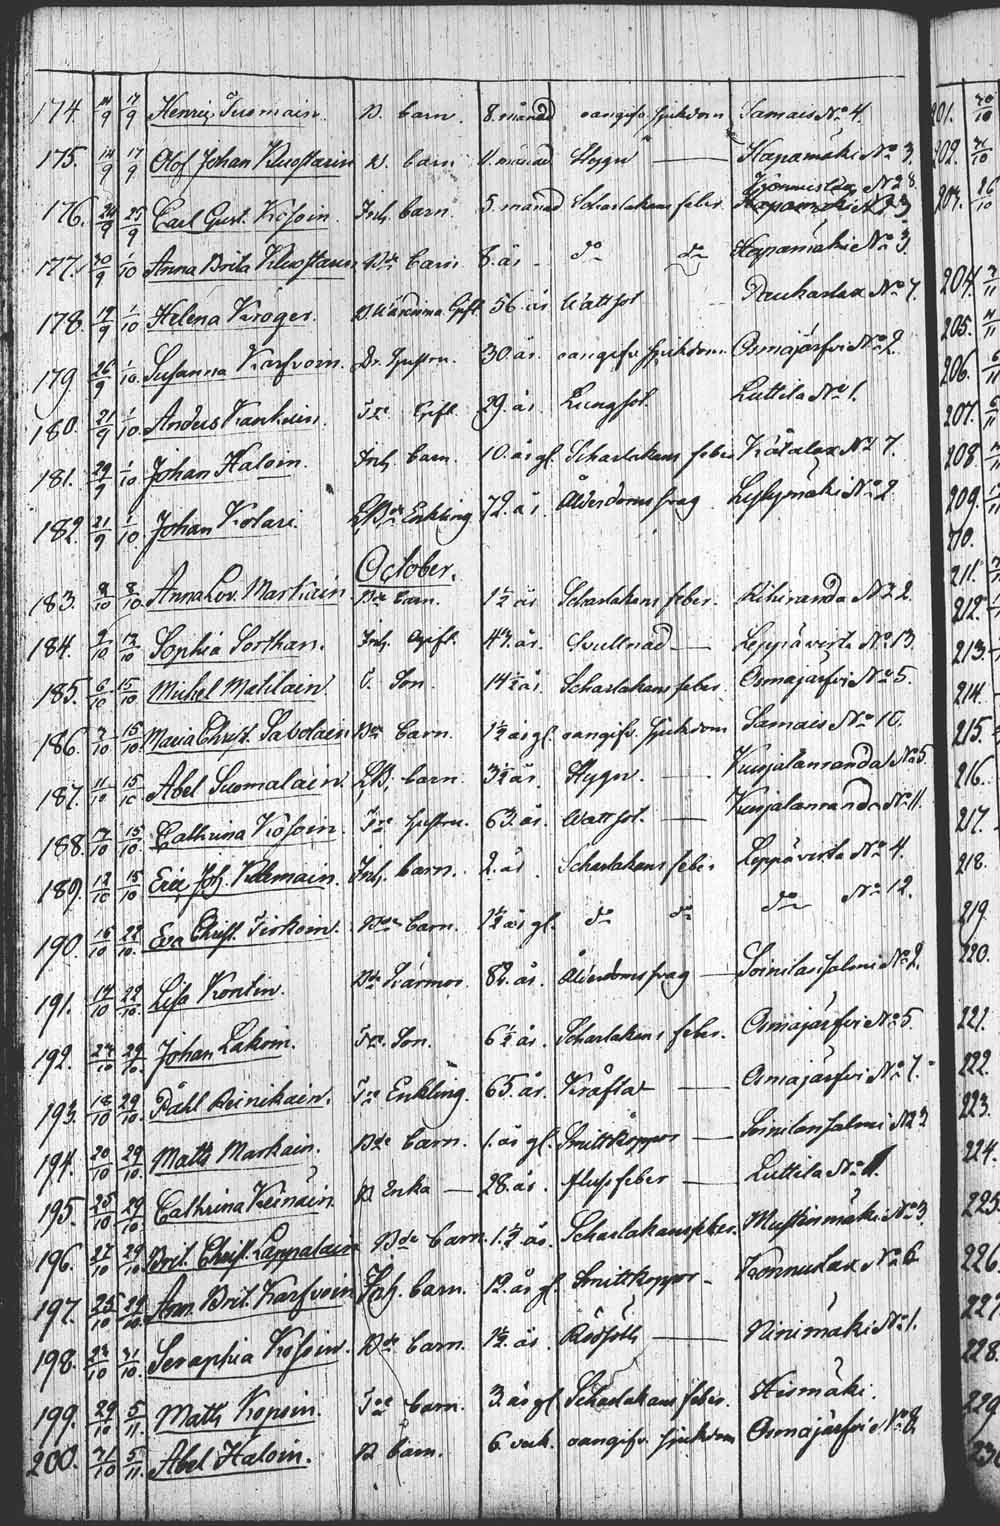 174. 14/9 17/9 Henric Tuomain. B. barn. 8. månad oangifv. sjukdom Samais No 4.
175. 14/9 17/9 Olof Johan Kuostain B. barn. 11. månad Slygn Hapamäki No 3.
Konnuslax No 28.
176. 24/9 25/9 Carl Gust. Kosoin. Inh. barn. 5. månad Scharlakans feber
177. 30/9 1/10 Anna Brita Kuostain Bde barn 8. år do do Hapamäki No 3.
178. 19/9 1/10 Helena Kröger. Gift 56 år Wattsot Paukarlax No 7.
179 26/9 1/10. Susanna Karfvoin. Dr. hustru. 30. år. oangifv sjukdom Osmajärfvi No 2.
180. 21/9 1/10. Anders Kankuin. Tor Gift 29. år. Lungsot. Luttila No 1.
181. 29/9 1/10 Johan Haloin. Inh. barn. 10. år gl. Scharlakans feber Kotalax No 7.
182. 21/9 1/10. Johan Kolari. Enkling 72. år. Ålderdoms svag No 2
October.
183. 2/10 8/10. Anna Lov. Markain Bde barn. 1½ år Scharlakans feber. Riihiranda No 2.
184. 2/10 12/10 Sophia Sorthan. Inh. Ogift. 47. år. Svullnad Leppävirta No 13.
185. 6/10 15/10. Michel Matilain T. Son. 14½ år. Scharlakans feber. Osmajärfvi No 5.
186. 7/10 15/10 Maria Christ. Saboloin Bdr barn. 1½ år gl. oangifv. sjukdom Samais No 10.
187. 11/10 15/10 Abel Suomalain. LB, barn. 3½ år. Slygn. Kurjalanranda No 5.
188. 7/10 15/10. Cathrina Kosoin. Tor hustru. 63. år. Wattsot. Kurjalanranda No 11.
189. 12/10 15/10 Eric Joh. Kukemain. Inh. barn. 2. år Scharlakans feber Leppävirta No 4.
190. 16/10 22/10. Eva Christ. Tirkoin. Bdr barn. 1½ år gl. do do do No 12.
191. 17/10 22/10. Lisa Kontin. Bds 82. år. Ålderdoms svag Soinilansalmi No 2.
192. 24/10 29/10. Johan Lakoin. Tor. Son. 6½ år. Scharlakans feber. Osmajärfvi No 5.
193. 18/10 29/10. Påhl Reinikain. Tor Enkling. 65. år. Kräfta Osmajärfvi No 7.
194. 20/10 29/10. Matts Markain. Bde barn. 1. år gl. Smittkoppor Soinilansalmi No 3
195. 25/10 29/10. Cathrina Keinäin. B Enka 28. år. flussfeber Luttila No 11.
196. 27/10 29/10. Brit. Christ. Lappalain Bde barn. 1.½ år. Scharlakansfeber. Mustinmäki No 3.
197. 25/10 29/10. Ann. Brit. Karfvoin Inh. barn. 12. år gl. Smittkoppor Konnuslax No 6
198. 23/10 31/10. Seraphia Kosoin. Bde barn. 1½. år. Rödsoth Ninimäki No 1.
199. 29/10 5/11. Matts Kopoin. Tor barn. 3. år gl. Scharlakans feber. Hismäki.
200. 31/10 5/11. Abel Haloin. B. barn. 6. veck. oangifv. sjukdom Osmajärfvi No 8.
201. 30/10
202. 31/10
203. 26/10
204. 2/11
205. 4/11
206. 6/11
207. 6/11
208.
209.
210.
211.
212.
213.
214.
215.
216.
217.
218.
219.
220.
221.
222.
223.
224.
225.
226.
227.
228.
229.
230